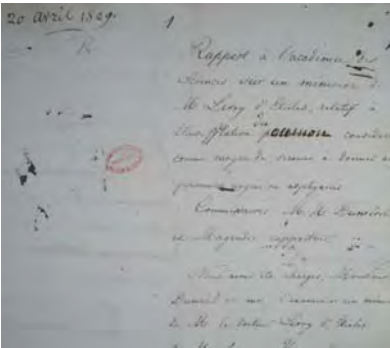 20 avril 1829.
1
R
Rapport à l'académie des
Sciences sur un mémoire de
M Leroy d'Etioles, relatif à
l'insufflation du poumon considérée
comme moyen de secours à donner aux
personnes noyées ou asphyxiées
Commissaires M.M. Duméril
et Magendie rapporteur
Nous avons été chargés, Monsieur
Duméril et moi, d'examiner un mém
de M. le docteur Leroy d'Etioles